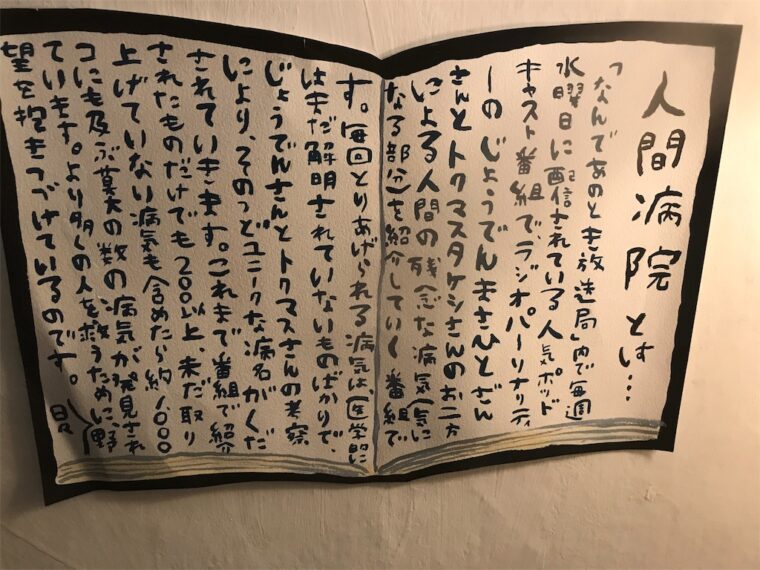 人間病院とは…
「なんであのとき放送局」内で毎週
水曜日に配信されている人気ポッド
キャスト番組で、ラジオパーソナリティ
ーのじょうでんまさひとさん
さんとトクマスタケシさんのお二方
による人間の残念な病気(気に
なる部分)を紹介していく番組で
す。毎回とりあげられる病気は、医学的に
はまだ解明されていないものばかりで、
じょうでんさんとトクマスさんの考察
により、そのつどユニークな病名がくだ
されていきます。これまで番組で紹介
されたものだけでも200以上、未だ取り
上げていない病気も含めたら約1000
コにも及ぶ莫大の数の病気が発見され
ています。より多くの人を救うために、野
望を抱きつづけているのです。日々